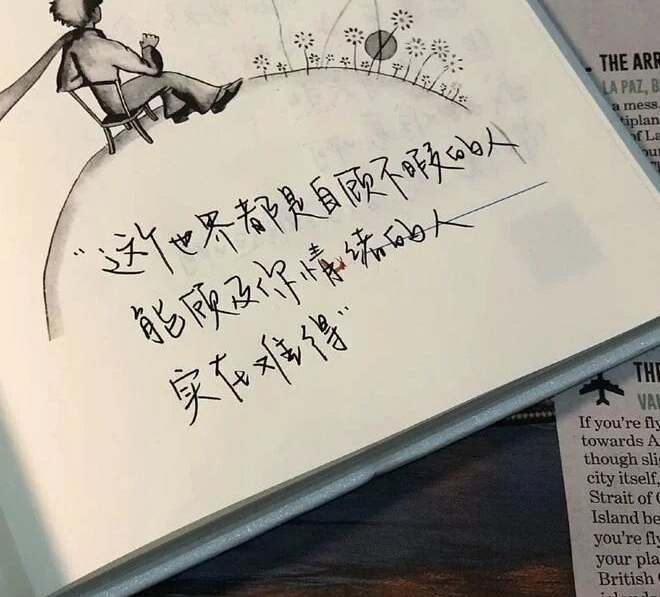 “这个世界都是自顾不暇的人
能顾及你情绪的人
实在难得”
THE ARR
LA PAZ, B
a mess
tiplan
of La
THE
VAL
If you're fly
towards A
though slig
city itself,
Strait of G
Island be
you're fly
your pla
British C